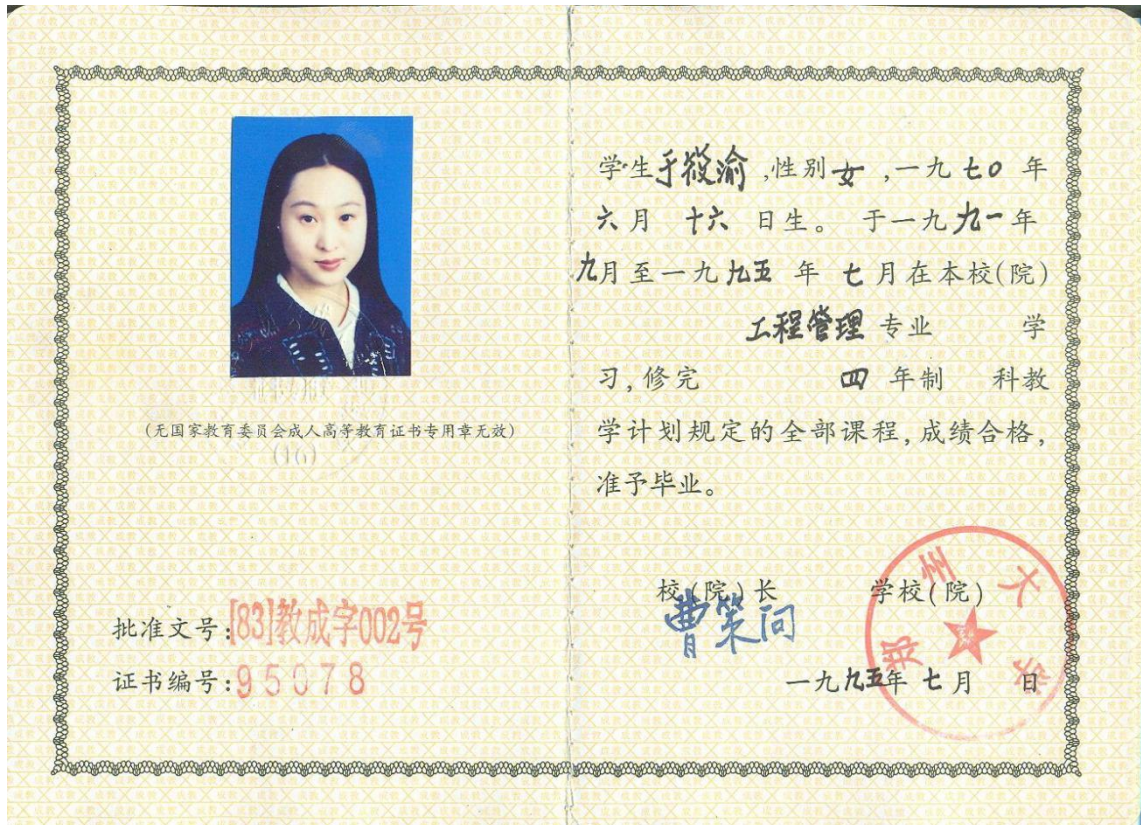 (无国家教育委员会成人高等教育证书专用章无效)
批准文号:[83]教成字002号
证书编号:95078
学生于筱渝,性别女,一九七0年
六月十六日生。于一九九一年
九月至一九九五年七月在本校(院)
工程管理专业 学
习,修完 四年制 科教
学计划规定的全部课程,成绩合格,
准予毕业。
校(院)长 学校(院)
曹策问
郑州大学
一九九五年七月 日